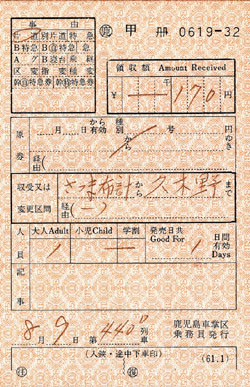 事由
㊞ 甲 册 0619-32
片道 別片道 特急
B特急 ⓐ自 特急
Aグ B寝台 乗継
区変 指変 種変
幹ⓐ特急券 幹自特急券
領収額 Amount Received
¥ 170円
原券
月 日から有効 種別 号 円
から ゆき
経由( )
収受又は 変更区間
さつま布計 から 久木野 まで
経由( — )
人員 大人Adult 小児Child 学割 発売日共 Good For 日間有効 Days
1 1
記事
8月9日 第440D列車
鹿児島車掌区
乗務員発行
(入鋏・途中下車印)
(61.1)